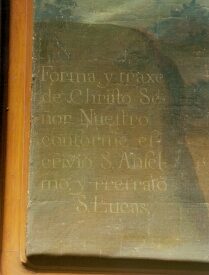 Forma, y traxe
de Christo Se
ñor Nuestro
conforme es
crivio S. Ansel
mo, y rretrato
S. Lucas,